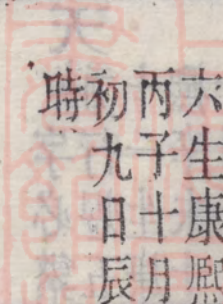 六生康熙
丙子十月
初九日辰
時